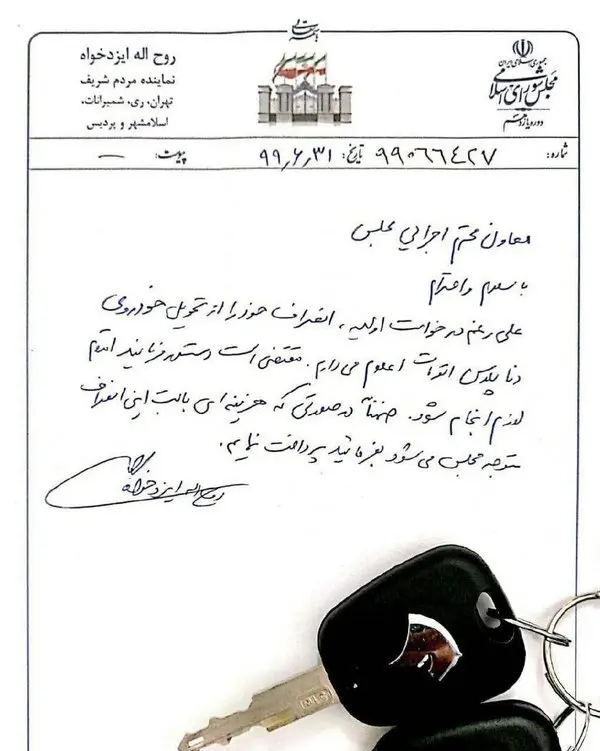 بسمه تعالی
جمهوری اسلامی ایران
مجلس شورای اسلامی
دوره یازدهم
روح اله ایزدخواه
نماینده مردم شریف
تهران، ری، شمیرانات،
اسلامشهر و پردیس
شماره: ۹۹۰۶۶۴۲۷ تاریخ: ۹۹٫۶٫۳۱ پیوست: —
معاون محترم اجرایی مجلس
با سلام و احترام
علی رغم درخواست اولیه، انصراف خود را از تحویل خودروی
دنا پلاس اتومات اعلام می دارم. مقتضی است دستور فرمائید اقدام
لازم انجام شود. ضمناً در صورتی که هزینه ای بابت این انصراف
متوجه مجلس می شود بفرمائید پرداخت نمایم.
روح اله ایزدخواه